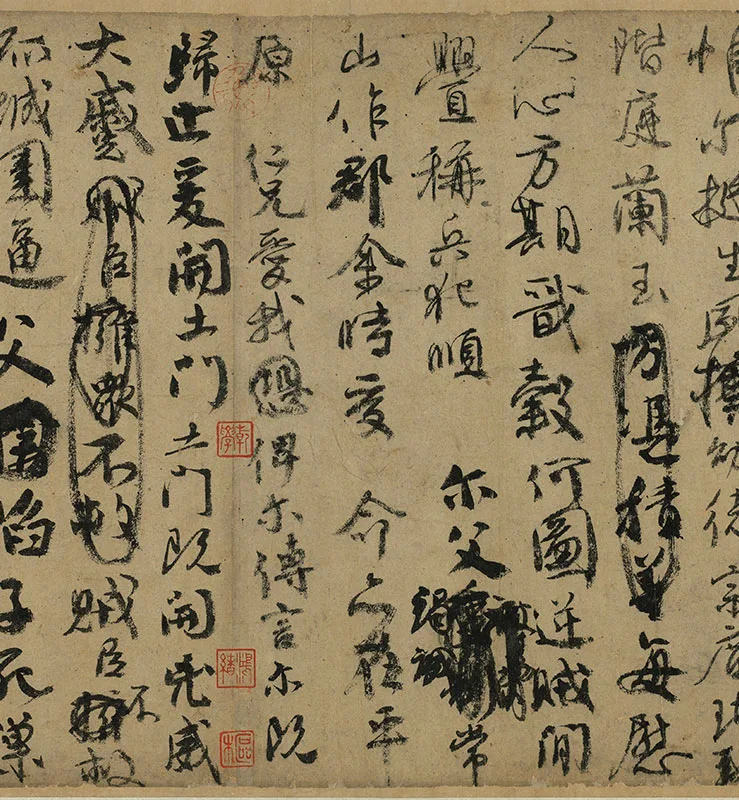 惟尔挺生夙摽幼德宗廟瑚璉
階庭蘭玉方憑積善每慰
人心方期戩穀何圖逆賊閒
釁稱兵犯順尔父竭誠常
山作郡余時受命亦在平
原仁兄愛我恐俾尔傳言尔既
歸止爰開土門土門既開凶威
大蹙賊臣擁眾不救賊臣擁不救
孤城圍逼父陷子死巢